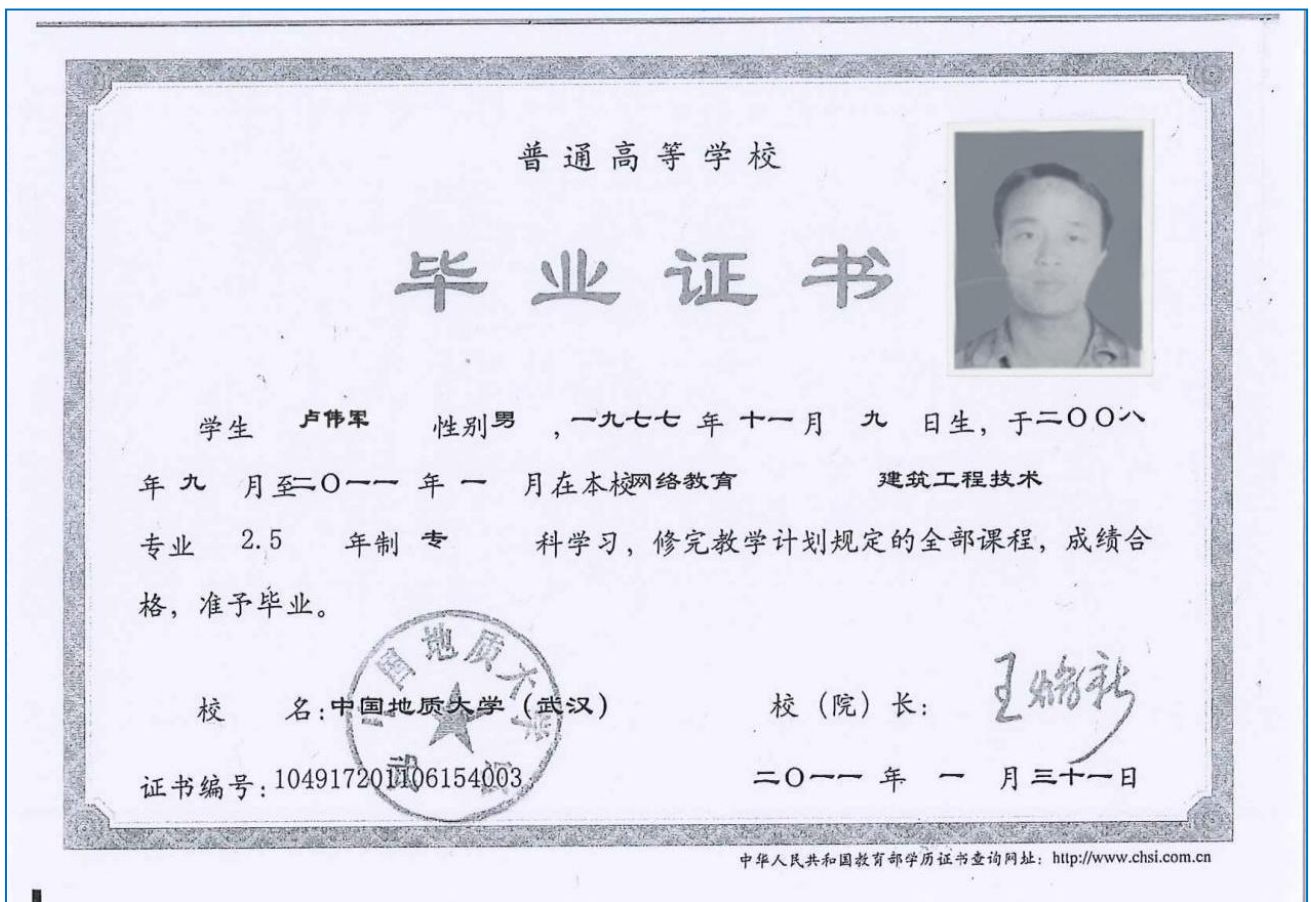 普通高等学校
毕业证书
学生 卢伟军 性别男，一九七七年十一月 九 日生，于二〇〇八
年 九 月至二〇一一 年 一 月在本校网络教育 建筑工程技术
专业 2.5 年制 专 科学习，修完教学计划规定的全部课程，成绩合
格，准予毕业。
校 名:中国地质大学（武汉） 校（院）长:
证书编号:104917201106154003 二〇一一 年 一 月三十一日
中华人民共和国教育部学历证书查询网址：http://www.chsi.com.cn